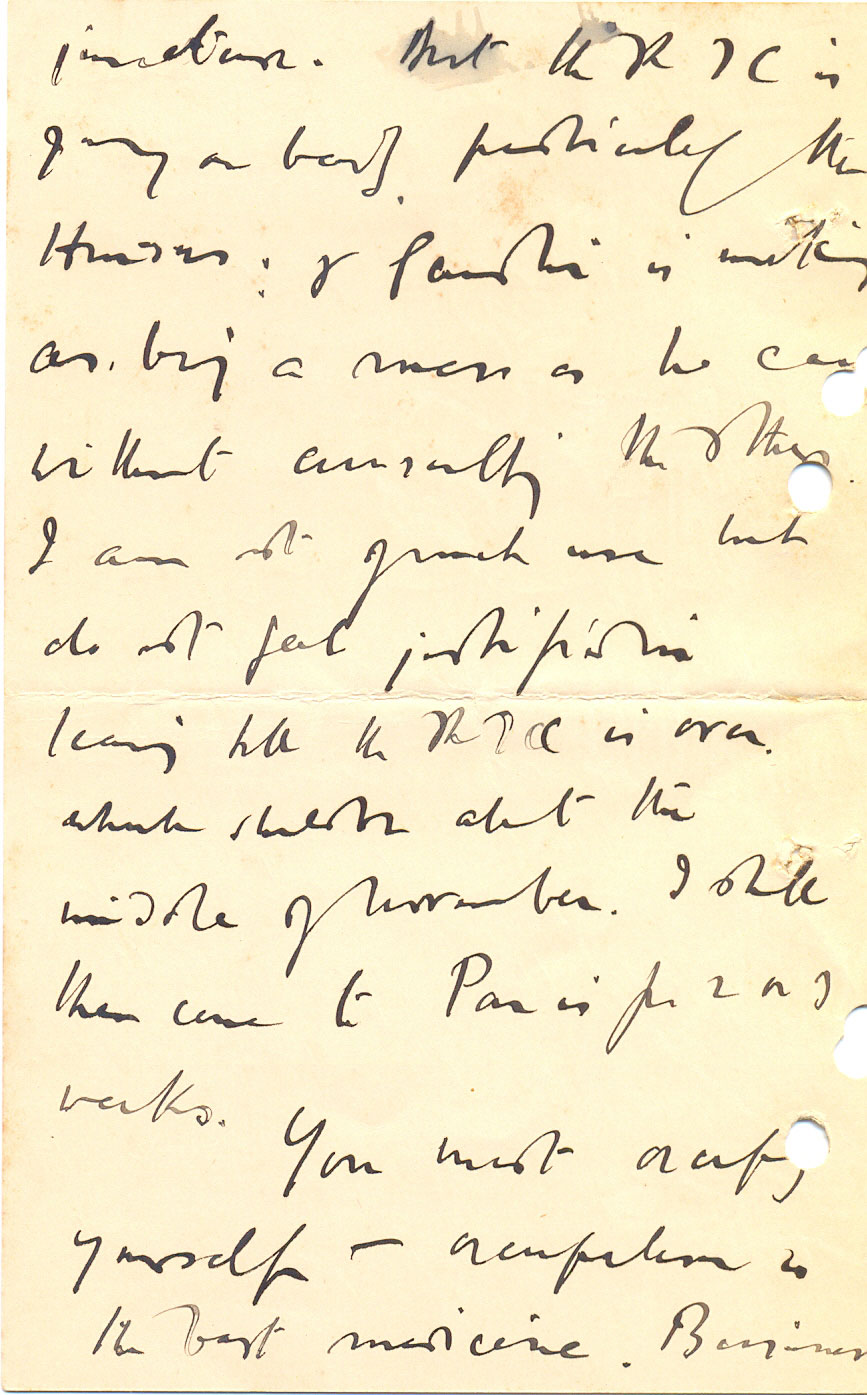 juncture. But the R T C is
going on badly, particularly the
Hindus; & Gandhi is making
as big a mess as he can
without consulting the others.
I am not of much use but
do not feel justified in
leaving till the R T C is over.
which should be about the
middle of November. I shall
then come to Paris for 2 or 3
weeks.
You must occupy
yourself — occupation is
the best medicine. Business